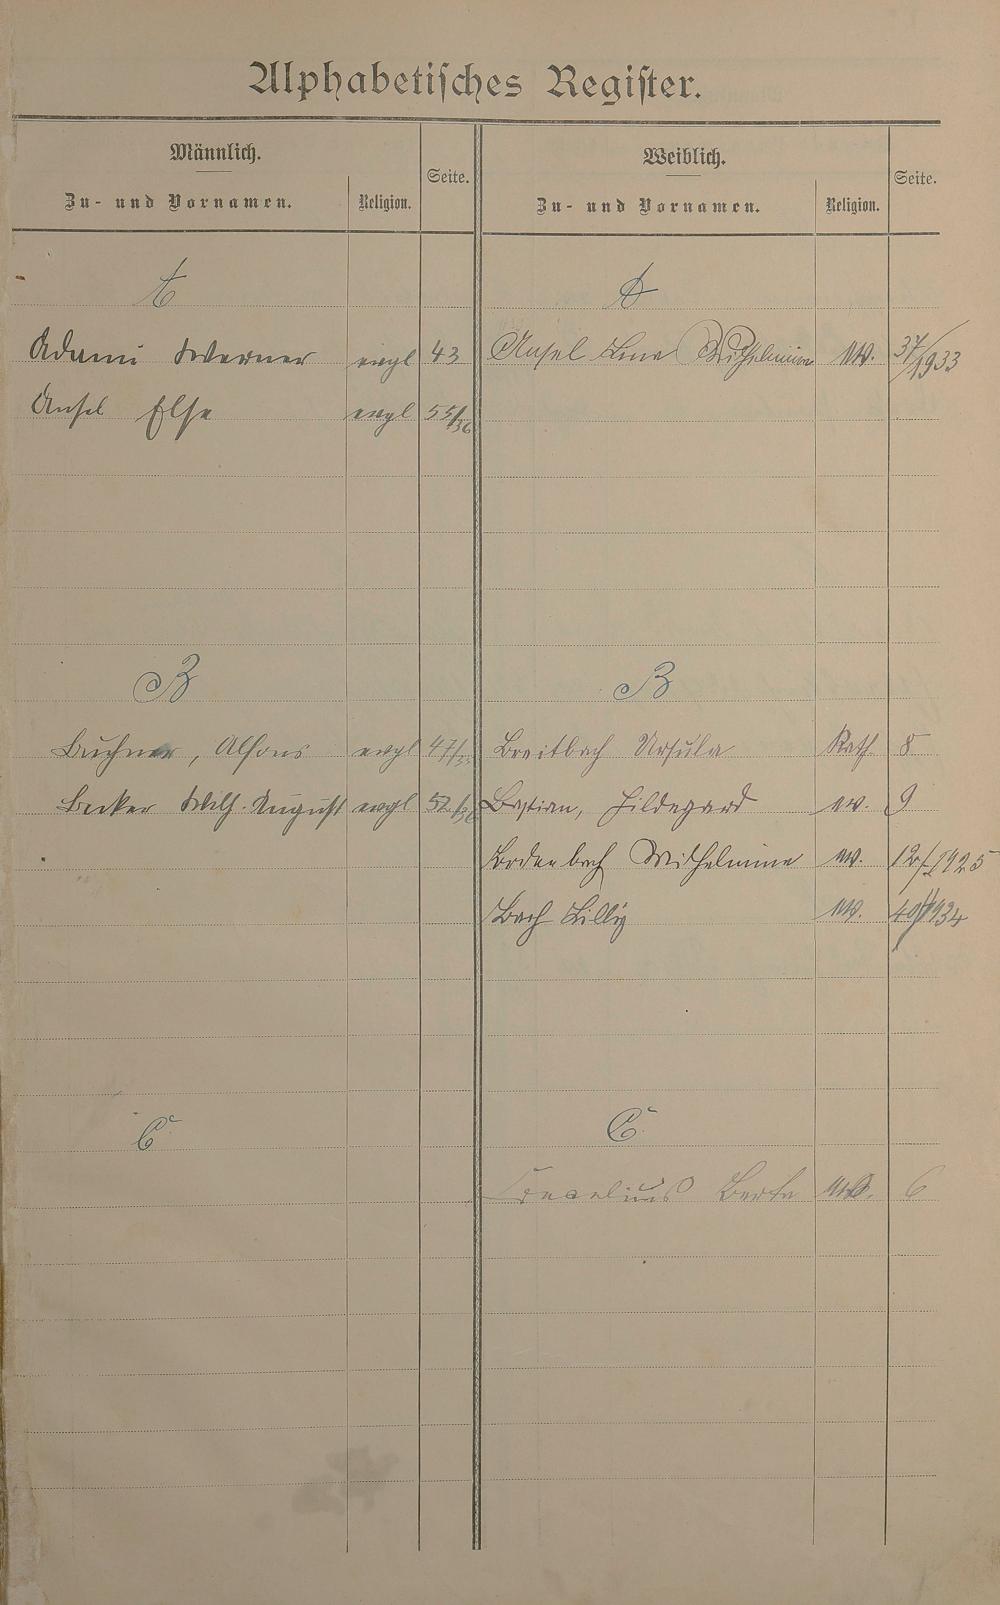 Alphabetisches Register.
Männlich.
Zu- und Vornamen.
Religion.
Seite.
Weiblich.
Zu- und Vornamen.
Religion.
Seite.
A
A
Adami Werner evgl 43
Ansel Lina Wilhelmine ev. 37/1933
Ansel Else evgl 55/36
B
B
Buchner, Alfons evgl 47/35
Breitbach Ursula Kath. 8
Becker Wilh. August evgl 52/36
Bastian, Hildegard ev. 9
Bodenbach Wilhelmine ev. 12/1925
Bach Lilly ev. 40/1934
C
C
Cornelius Berta ev. 6